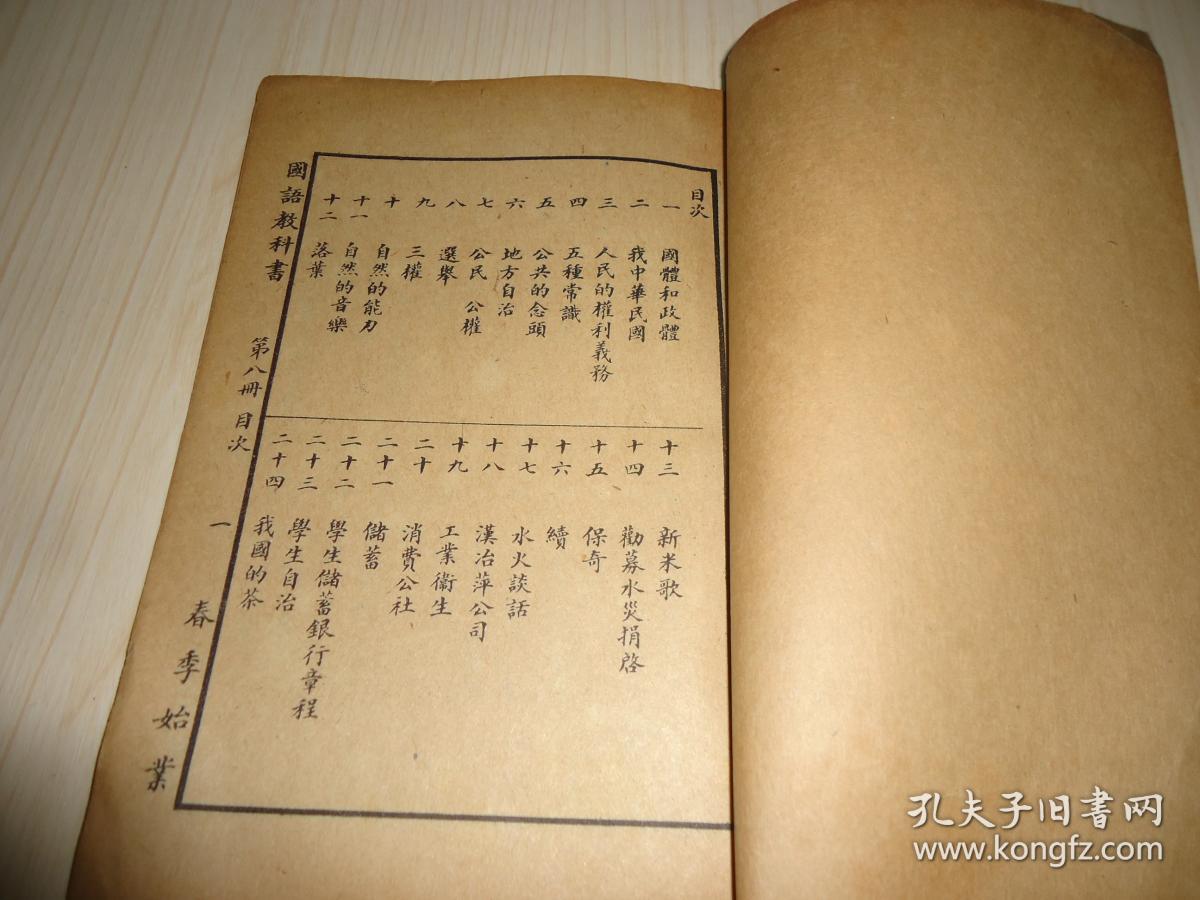 目次
一 國體和政體
二 我中華民國
三 人民的權利義務
四 五種常識
五 公共的念頭
六 地方自治
七 公民 公權
八 選舉
九 三權
十 自然的能力
十一 自然的音樂
十二 落葉
十三 新米歌
十四 勸募水災捐啓
十五 保奇
十六 續
十七 水火談話
十八 漢冶萍公司
十九 工業衞生
二十 消費公社
二十一 儲蓄
二十二 學生儲蓄銀行章程
二十三 學生自治
二十四 我國的茶
國語教科書 第八冊 目次 一 春季始業
孔夫子旧书网
www.kongfz.com